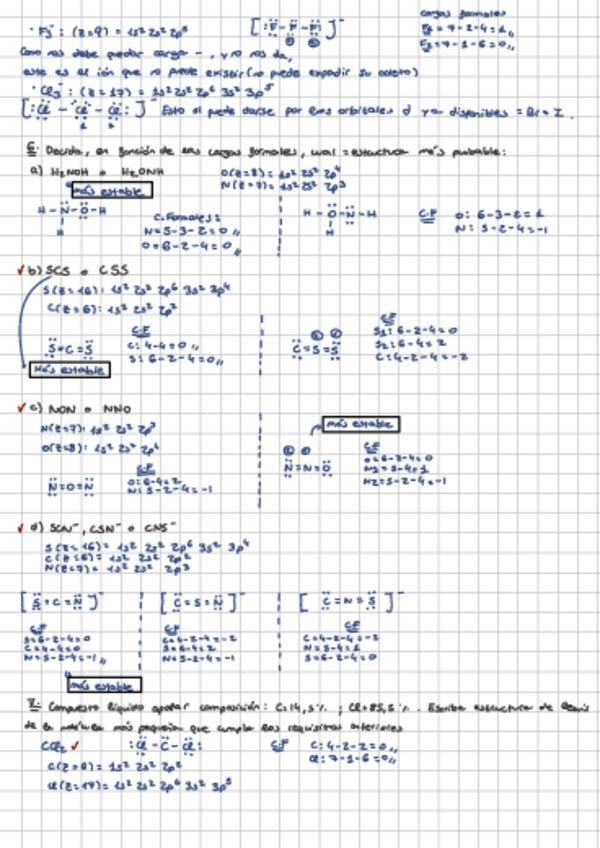 · F₃⁻: (Z=9) = 1s² 2s² 2p⁵ [:F-F-F:]⁻ cargas formales
F₁ = 7-2-4=1,,
F₂ = 7-1-6=0,,
Como nos debe quedar carga -, y no nos da,
este es el ión que no puede existir (no puede expandir su octeto)
· Cl₃⁻: (Z=17) = 1s² 2s² 2p⁶ 3s² 3p⁵
[:Cl - Cl - Cl:]⁻ Esto sí puede darse por los orbitales d ya disponibles = Br = I.
6. Decida, en función de las cargas formales, cual = estructura más probable:
a) H₂NOH o H₂ONH O(Z=8): 1s² 2s² 2p⁴
N(Z=7): 1s² 2s² 2p³
más estable
H-N-O-H
H
C. Formales:
N=5-3-2=0,,
O=6-2-4=0,,
H-O-N-H
H
C.F
O: 6-3-2=1
N: 5-2-4=-1
b) SCS o CSS
S(Z=16): 1s² 2s² 2p⁶ 3s² 3p⁴
C(Z=6): 1s² 2s² 2p²
S=C=S
C.F
C: 4-4=0,,
S: 6-2-4=0,,
C=S=S
C.F
S₁: 6-2-4=0
S₂: 6-4=2
C: 4-2-4=-2
Más estable
c) NON o NNO
N(Z=7): 1s² 2s² 2p³
O(Z=8): 1s² 2s² 2p⁴
N=O=N
C.F
O: 6-4=2
N: 5-2-4=-1
más estable
N=N=O
C.F
O=6-2-4=0
N₁=5-4=1
N₂=5-2-4=-1
d) SCN⁻, CSN⁻ o CNS⁻
S(Z=16) = 1s² 2s² 2p⁶ 3s² 3p⁴
C(Z=6) = 1s² 2s² 2p²
N(Z=7) = 1s² 2s² 2p³
[S=C=N]⁻ [C=S=N]⁻ [C=N=S]⁻
C.F
S=6-2-4=0
C=4-4=0
N=5-2-4=-1,,
C.F
C=4-2-4=-2
S=6-4=2
N=5-2-4=-1
C.F
C=4-2-4=-2
N=5-4=1
S=6-2-4=0
más estable
7. Compuesto líquido composición: C=14,5%; Cl=85,5%. Escriba estructura de Lewis
de la molécula más pequeña que cumpla los requisitos anteriores
CCl₂ :Cl-C-Cl: C.F C: 4-2-2=0,,
Cl: 7-1-6=0,,
C(Z=6) = 1s² 2s² 2p²
Cl(Z=17) = 1s² 2s² 2p⁶ 3s² 3p⁵